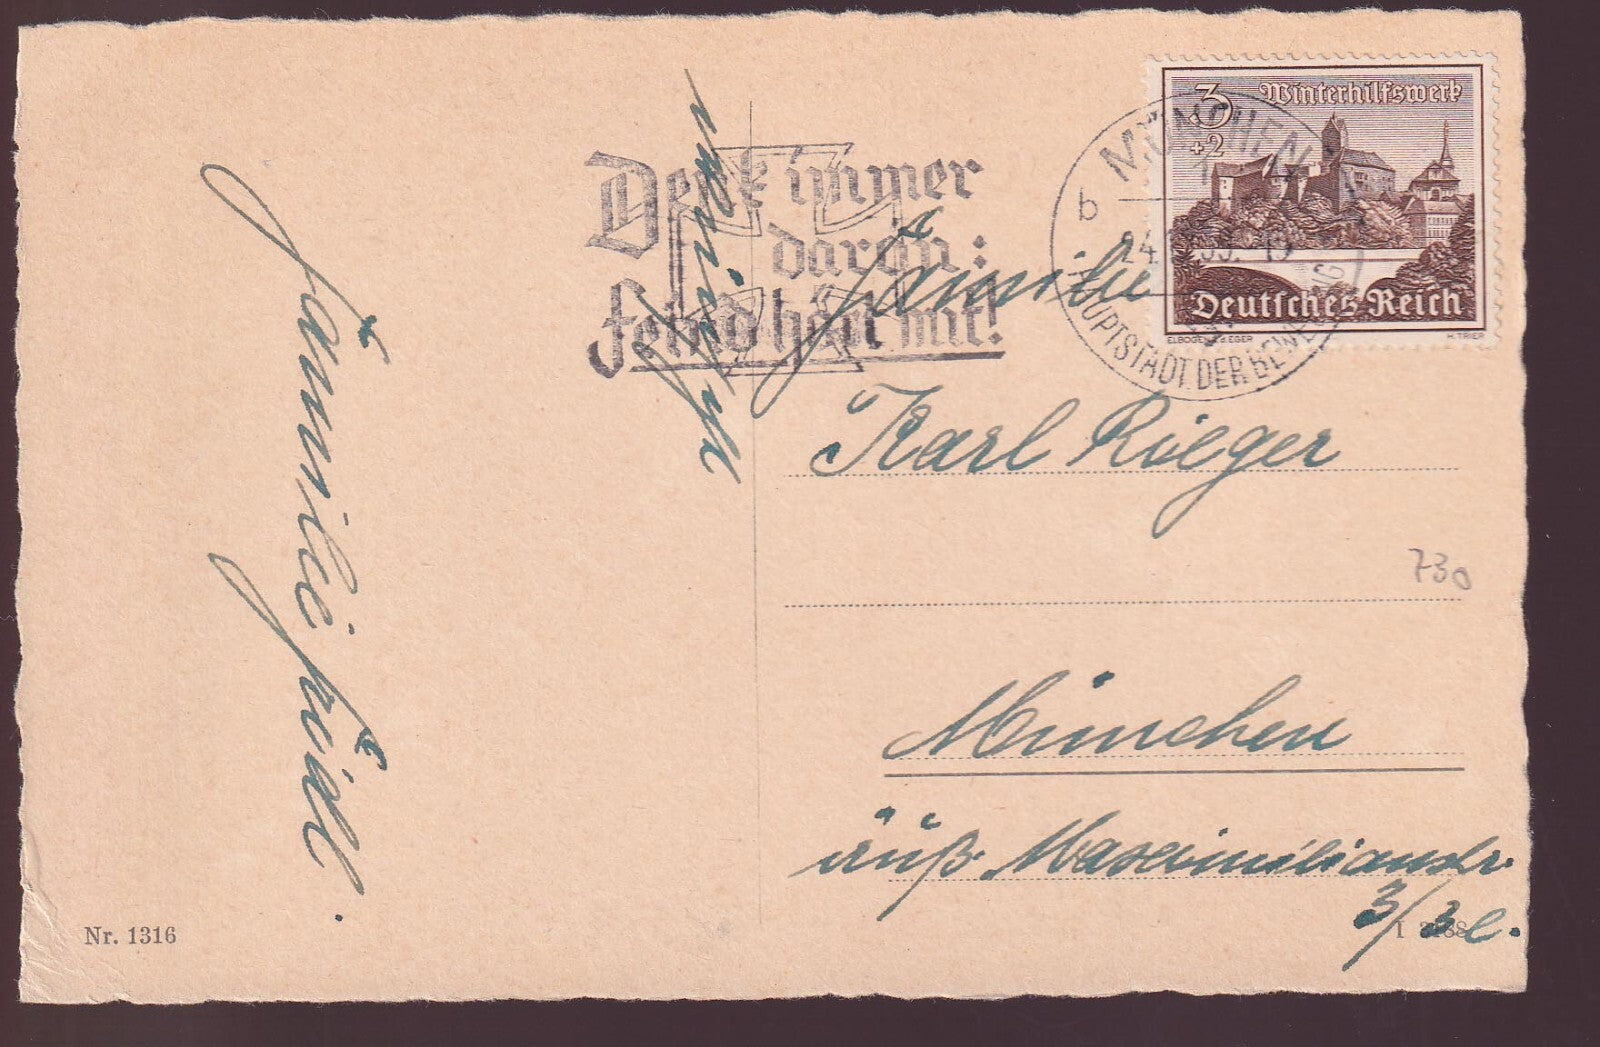 3
+2
Winterhilfswerk
Deutsches Reich
ELBOGEN a.d.EGER
H.TRIER
MÜNCHEN
b
24. 39. 19
HAUPTSTADT DER BEWEGUNG
Denk immer
daran:
Feind hört mit!
Familie
Karl Rieger
München
äuß. Maximilianstr.
3/3 l.
730
Familie
Nr. 1316